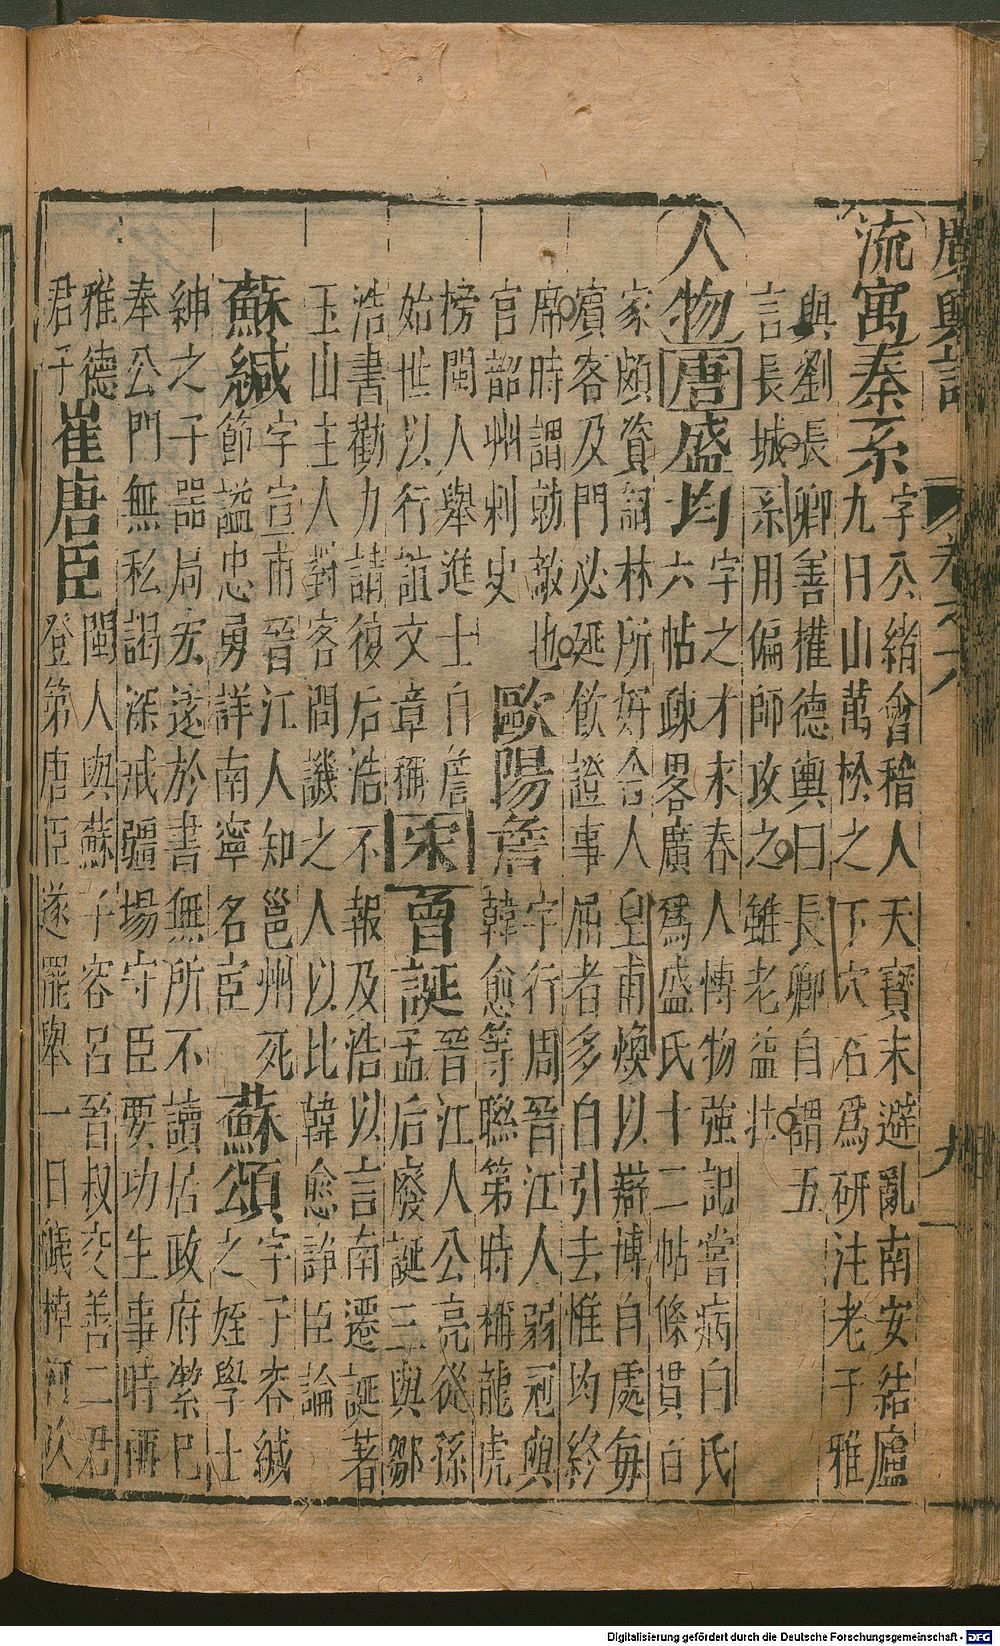 廣輿記
卷之十八
九
流寓秦系
字公緒會稽人天寶末避亂南安結廬
九日山萬松之下穴石爲研注老子雅
與劉長卿善權德輿曰長卿自謂五
言長城系用偏師攻之雖老益壯
人物唐盛均
字之才永春人博物強記嘗病白氏
六帖疎畧廣爲盛氏十二帖條貫百
家頗資詞林所好舍人皇甫煥以辯博自處每
賓客及門必延飲證事屈者多自引去惟均終
席時謂勍敵也
歐陽詹
字行周晉江人弱冠與
韓愈等聯第時稱龍虎
官韶州刺史
榜閩人舉進士自詹
始世以行誼文章稱
宋曾誕
晉江人公亮從孫
孟后廢誕三與鄒
浩書勸力請復后浩不報及浩以言南遷誕著
玉山主人對客問譏之人以比韓愈諍臣論
蘇緘
字宣甫晉江人知邕州死
節謚忠勇詳南寧名宦
蘇頌
字子容緘
之姪學士
紳之子器局宏遠於書無所不讀居政府縈已
奉公門無私謁深戒疆場守臣要功生事時稱
雅德
君子
崔唐臣
閩人與蘇子容呂晉叔交善二君
登第唐臣遂罷舉一日艤棹河
Digitalisierung gefördert durch die Deutsche Forschungsgemeinschaft - DFG